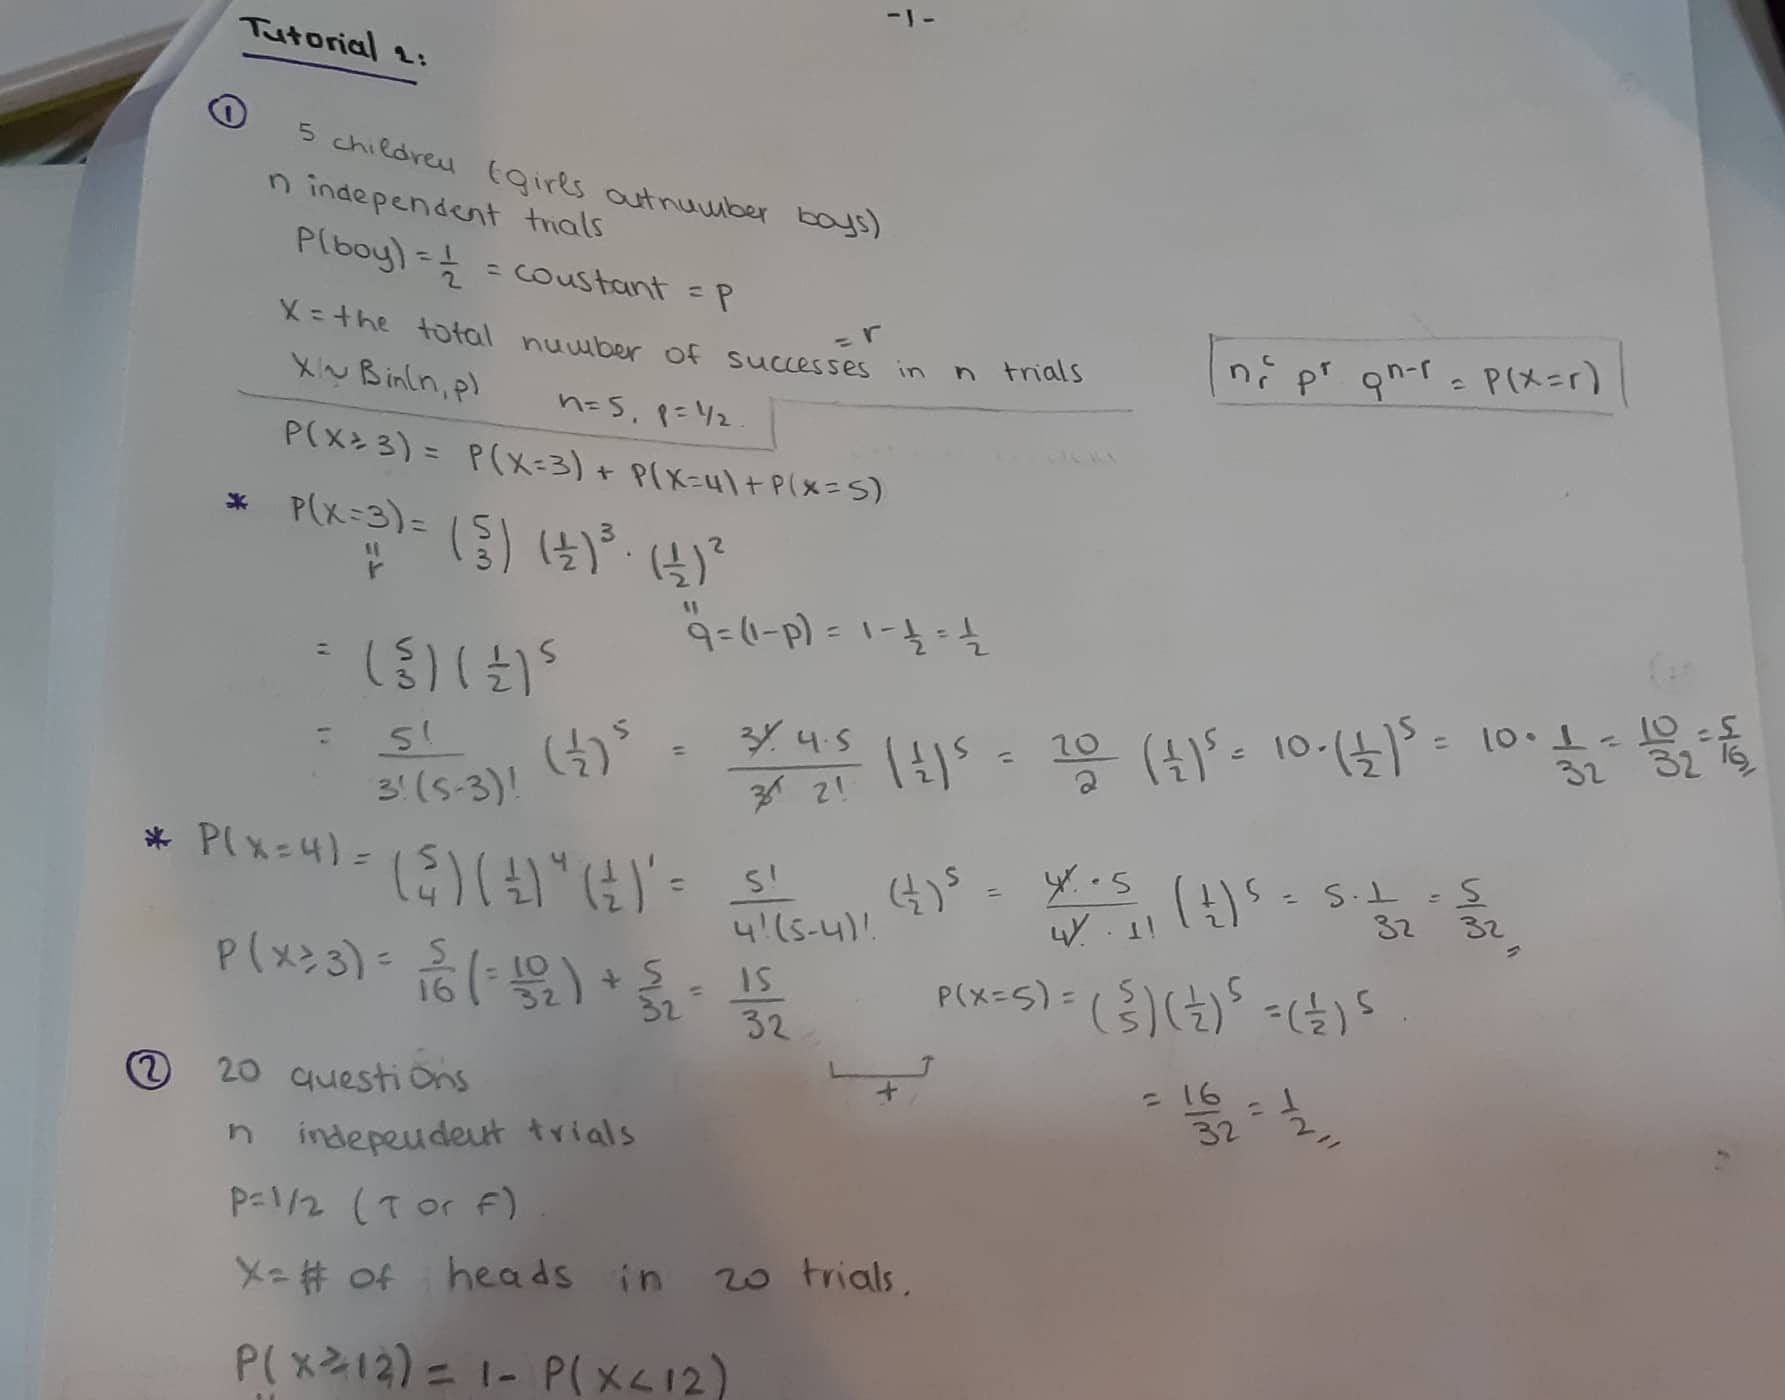 -1-
Tutorial 2:
① 5 children (girls outnumber boys)
n independent trials
P(boy) = 1/2 = constant = p
X = the total number of successes = r in n trials
X ~ Bin(n, p) n=5, p=1/2.
nᶜᵣ pʳ qⁿ⁻ʳ = P(X=r)
P(X≥3) = P(X=3) + P(X=4) + P(X=5)
* P(X=3) = (5 3) (1/2)³ · (1/2)²
" r
" q = (1-p) = 1 - 1/2 = 1/2
= (5 3) (1/2)⁵
= 5! / 3!(5-3)! (1/2)⁵ = 3! 4·5 / 3! 2! (1/2)⁵ = 20/2 (1/2)⁵ = 10·(1/2)⁵ = 10 · 1/32 = 10/32 = 5/16
* P(X=4) = (5 4) (1/2)⁴ (1/2)¹ = 5! / 4!(5-4)! (1/2)⁵ = 4! · 5 / 4! · 1! (1/2)⁵ = 5 · 1/32 = 5/32
P(X≥3) = 5/16 (= 10/32) + 5/32 = 15/32
P(X=5) = (5 5) (1/2)⁵ = (1/2)⁵.
+
= 16/32 = 1/2
② 20 questions
n independent trials
P=1/2 (T or F).
X = # of heads in 20 trials.
P(X≥12) = 1 - P(X<12)